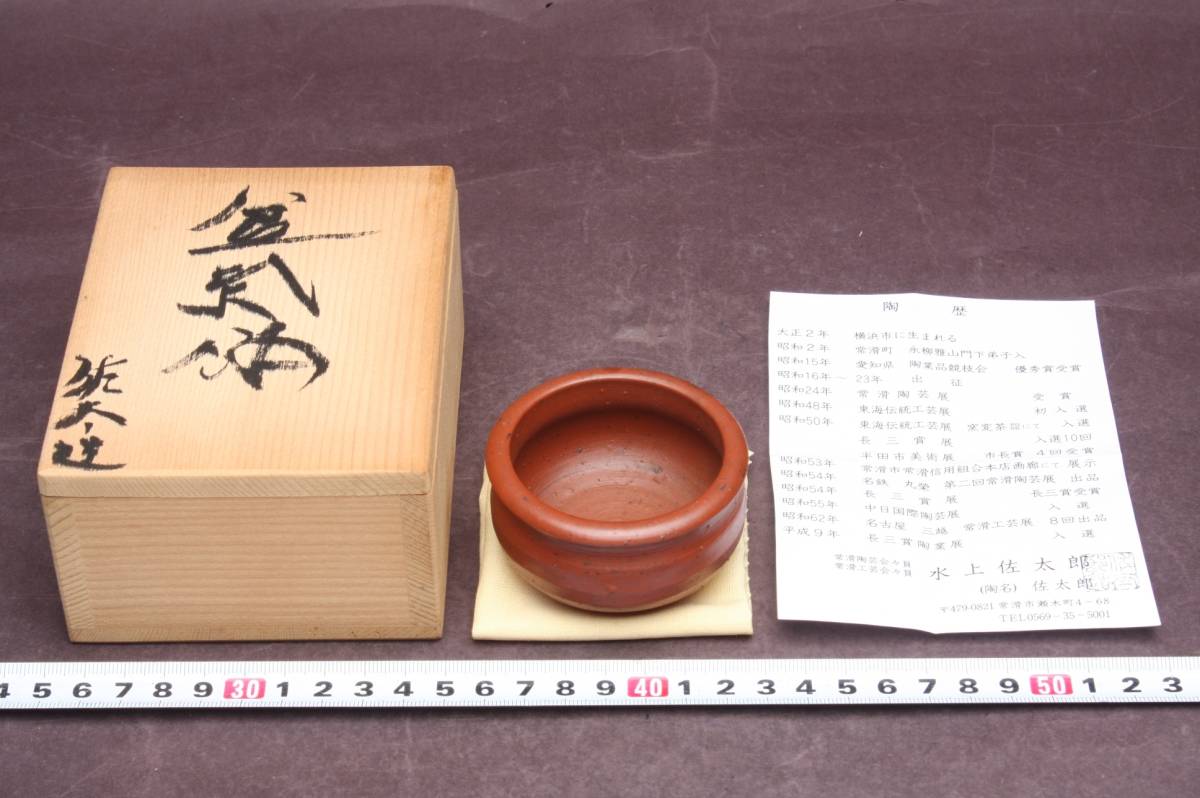 佐太造
陶歴
大正2年 横浜市に生まれる
昭和2年 常滑町 永柳雅山門下弟子入
昭和15年 愛知県 陶業品競技会 優秀賞受賞
昭和16年~23年 出征
昭和24年 常滑陶芸展 受賞
昭和48年 東海伝統工芸展 初入選
昭和50年 東海伝統工芸展 窯変茶器にて 入選
長三賞展 入選10回
半田市美術展 市長賞 4回受賞
昭和53年 常滑市常滑信用組合本店画廊にて 展示
昭和54年 名鉄 丸榮 第二回常滑陶芸展 出品
昭和54年 長三賞展 長三賞受賞
昭和55年 中日国際陶芸展 入選
昭和62年 名古屋 三越 常滑工芸展 8回出品
平成9年 長三賞陶業展 入選
常滑陶芸会々員
常滑工芸会々員
水上佐太郎
(陶名) 佐太郎
〒479-0821 常滑市瀬木町4-68
TEL0569-35-5001
4 5 6 7 8 9 30 1 2 3 4 5 6 7 8 9 40 1 2 3 4 5 6 7 8 9 50 1 2 3